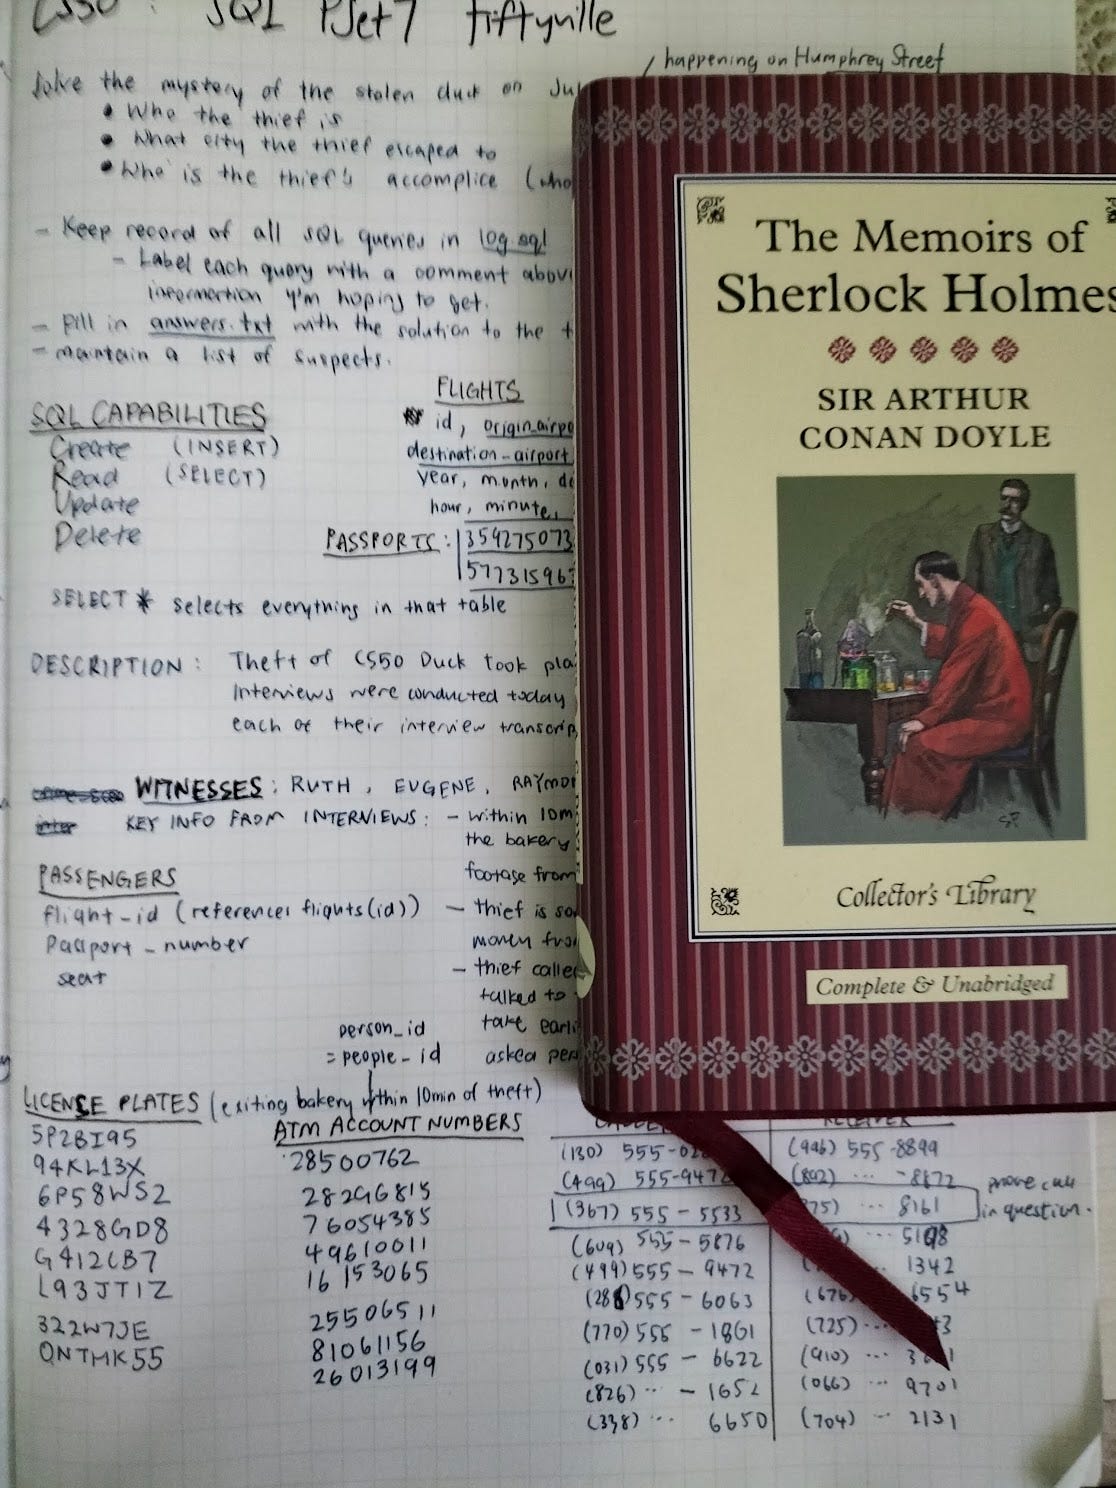 CS50 : SQL PSet 7 fiftyville
happening on Humphrey Street
Solve the mystery of the stolen duck on Jul
• Who the thief is
• What city the thief escaped to
• Who is the thief's accomplice (who
- Keep record of all SQL queries in log.sql
- Label each query with a comment above
information I'm hoping to get.
- Fill in answers.txt with the solution to the
- maintain a list of suspects.
SQL CAPABILITIES
Create (INSERT)
Read (SELECT)
Update
Delete
FLIGHTS
id, origin_airpo
destination_airport
year, month, d
hour, minute,
PASSPORTS: 354275073
57731596
SELECT * selects everything in that table
DESCRIPTION: Theft of CS50 Duck took pla
Interviews were conducted today
each of their interview transcrip
WITNESSES: RUTH, EUGENE, RAYMO
KEY INFO FROM INTERVIEWS: - within 10m
the bakery
footage from
- thief is so
money fro
- thief calle
talked to
take earli
asked per
PASSENGERS
flight_id (references flights(id))
Passport_number
seat
person_id
= people_id
LICENSE PLATES (exiting bakery within 10min of theft)
5P2BI95
94KL13X
6P58WS2
4328GD8
G412CB7
L93JTIZ
322W7JE
0NTHK55
ATM ACCOUNT NUMBERS
28500762
28296815
76054385
49610011
16153065
25506511
81061156
26013199
CALLER
(130) 555-02
(499) 555-9472
(367) 555-5533
(609) 555-5876
(499) 555-9472
(286) 555-6063
(770) 555-1861
(031) 555-6622
(826) ... -1652
(338) ... 6650
RECEIVER
(996) 555-8899
(892) ... -8672
75) ... 8161
... 5198
1342
(676) 6554
(725) ... 3
(910) ... 3
(066) ... 9701
(704) ... 2131
phone call
in question.
The Memoirs of
Sherlock Holmes
SIR ARTHUR
CONAN DOYLE
Collector's Library
Complete & Unabridged